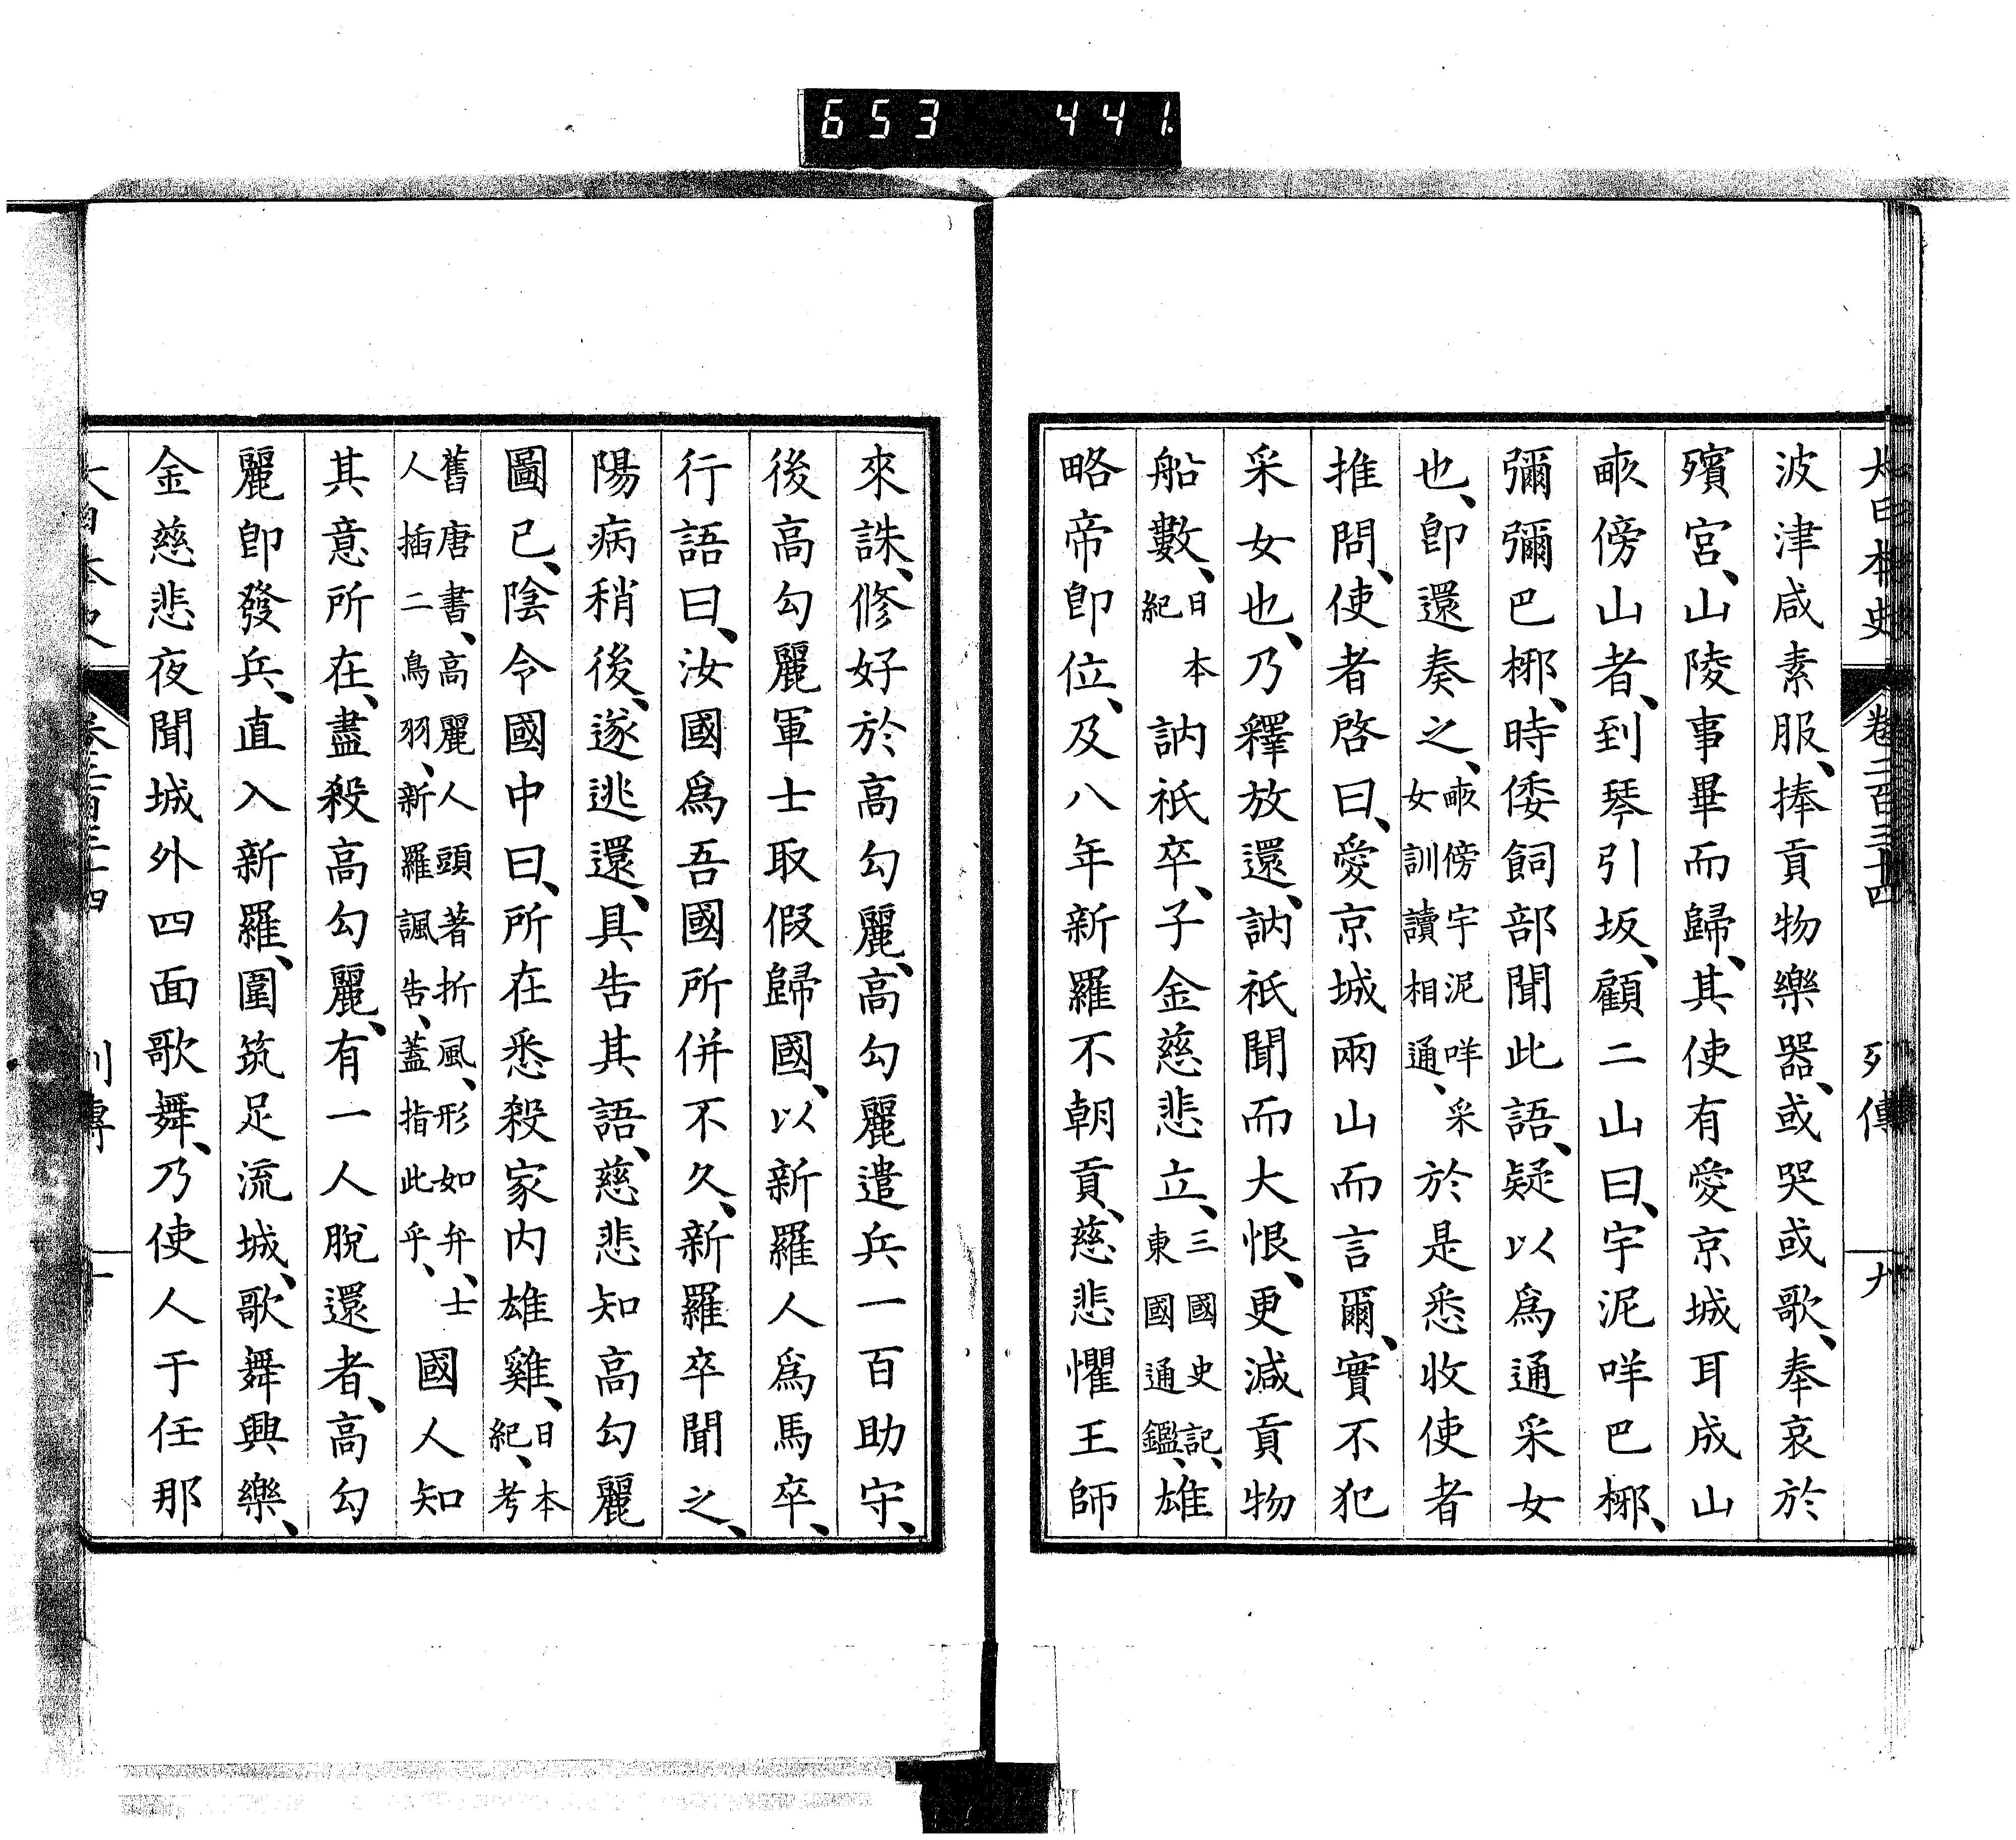 653 441.
大日本史 卷二百三十四 列傳
波津咸素服、捧貢物樂器、或哭或歌、奉哀於
殯宮、山陵事畢而歸、其使有愛京城耳成山
畝傍山者、到琴引坂、顧二山曰、宇泥咩巴椰、
彌彌巴椰、時倭飼部聞此語、疑以爲通采女
也、卽還奏之、畝傍宇泥咩采女訓讀相通、於是悉收使者
推問、使者啓曰、愛京城兩山而言爾、實不犯
采女也、乃釋放還、訥祇聞而大恨、更減貢物
船數、日本紀訥祇卒、子金慈悲立、三國史記、東國通鑑、雄
略帝卽位、及八年新羅不朝貢、慈悲懼王師
來誅、修好於高勾麗、高勾麗遣兵一百助守、
後高勾麗軍士取假歸國、以新羅人爲馬卒、
行語曰、汝國爲吾國所併不久、新羅卒聞之、
陽病稍後、遂逃還、具告其語、慈悲知高勾麗
圖己、陰令國中曰、所在悉殺家内雄雞、日本紀、考
舊唐書、高麗人頭著折風、形如弁、士人插二鳥羽、新羅諷告、蓋指此乎、國人知
其意所在、盡殺高勾麗、有一人脫還者、高勾
麗卽發兵、直入新羅、圍筑足流城、歌舞興樂、
金慈悲夜聞城外四面歌舞、乃使人于任那
大日本史 卷二百三十四 列傳